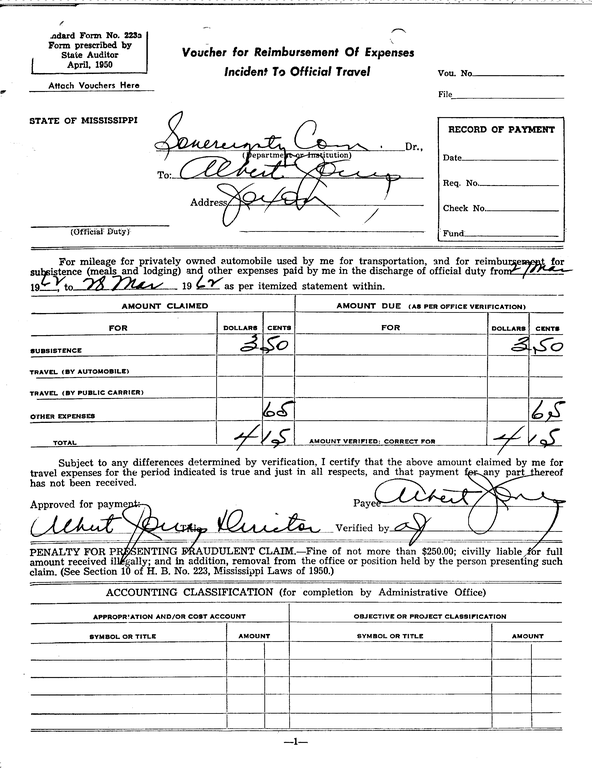 ndard Form No. 223a
Form prescribed by
State Auditor
April, 1950
Attach Vouchers Here
Voucher for Reimbursement Of Expenses
Incident To Official Travel
Vou. No.
File
STATE OF MISSISSIPPI
Sovereignty Com. Dr.,
(Department or Institution)
To: Albert Jones
Address Jaxon
(Official Duty)
RECORD OF PAYMENT
Date
Req. No.
Check No.
Fund
For mileage for privately owned automobile used by me for transportation, and for reimbursement for
subsistence (meals and lodging) and other expenses paid by me in the discharge of official duty from Mar
1962, to 28 Mar 1962 as per itemized statement within.
AMOUNT CLAIMED AMOUNT DUE (AS PER OFFICE VERIFICATION)
FOR DOLLARS CENTS FOR DOLLARS CENTS
SUBSISTENCE 3 50 3 50
TRAVEL (BY AUTOMOBILE)
TRAVEL (BY PUBLIC CARRIER)
OTHER EXPENSES 65 65
TOTAL 4 15 AMOUNT VERIFIED: CORRECT FOR 4 15
Subject to any differences determined by verification, I certify that the above amount claimed by me for
travel expenses for the period indicated is true and just in all respects, and that payment for any part thereof
has not been received.
Approved for payment: Payee Albert Jones
Albert Jones Director Verified by aj
PENALTY FOR PRESENTING FRAUDULENT CLAIM.—Fine of not more than $250.00; civilly liable for full
amount received illegally; and in addition, removal from the office or position held by the person presenting such
claim. (See Section 10 of H. B. No. 223, Mississippi Laws of 1950.)
ACCOUNTING CLASSIFICATION (for completion by Administrative Office)
APPROPRIATION AND/OR COST ACCOUNT OBJECTIVE OR PROJECT CLASSIFICATION
SYMBOL OR TITLE AMOUNT SYMBOL OR TITLE AMOUNT
—1—